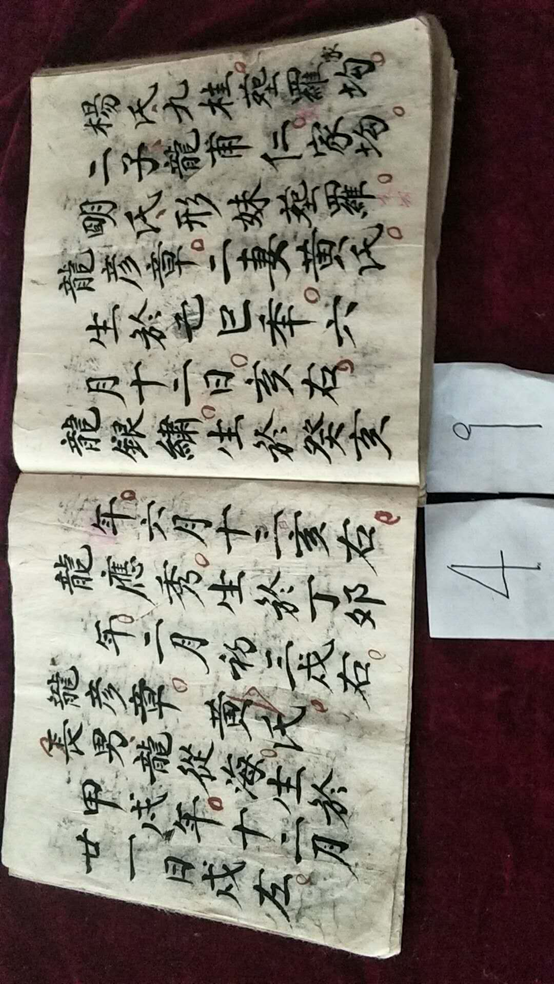 楊氏九桂葬羅家坳
二子龍甫仁家坳
明氏形妹葬羅
龍彥章二妻黄氏
生於己巳年六
月十二日亥右
龍銀繡生於癸亥
年六月十二亥右
龍應秀生於丁卯
年二月初三戌右
龍彥章黄氏
長男龍從海生於
甲戌年十二月
廿一日戌左
9
4